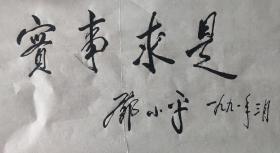 實事求是
鄧小平 一九九一年三月